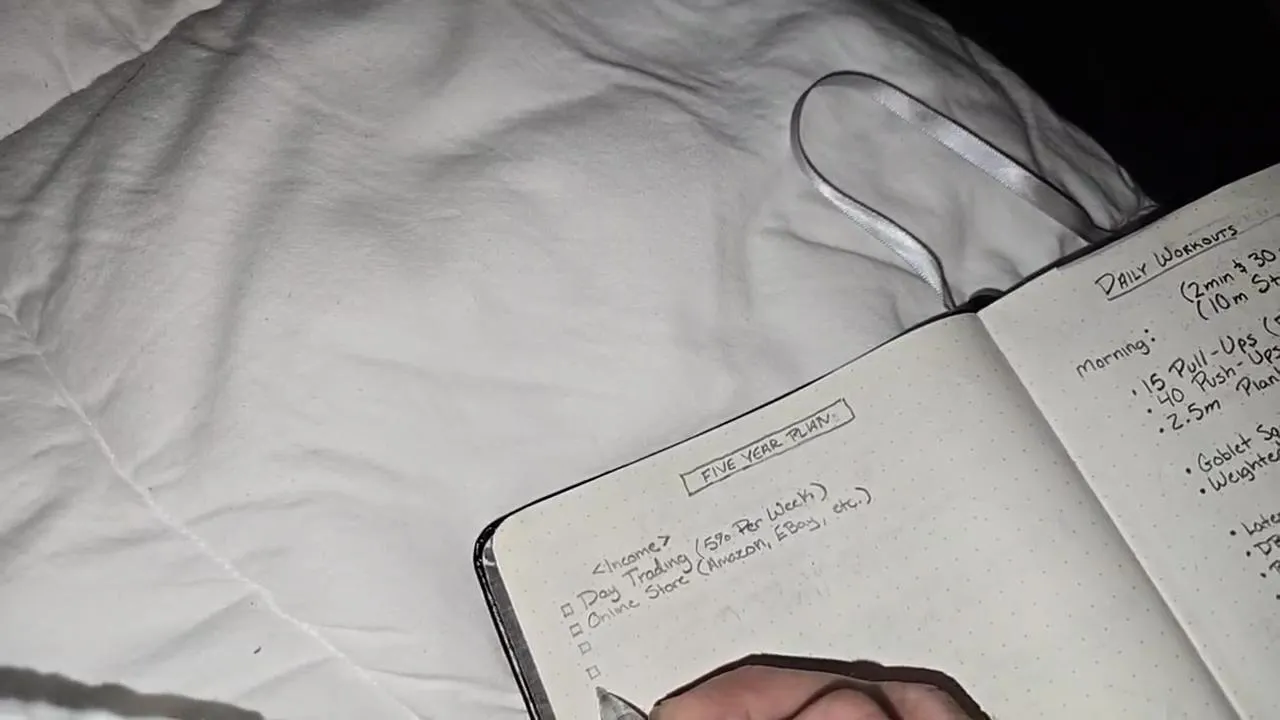 FIVE YEAR PLAN:
<Income>
Day Trading (5% Per Week)
Online Store (Amazon, EBay, etc.)
DAILY WORKOUTS
(2min & 30
(10m St
Morning:
• 15 Pull-Ups (
• 40 Push-Ups
• 2.5m Plank
• Goblet Sq
• Weighted
• Late
• DB